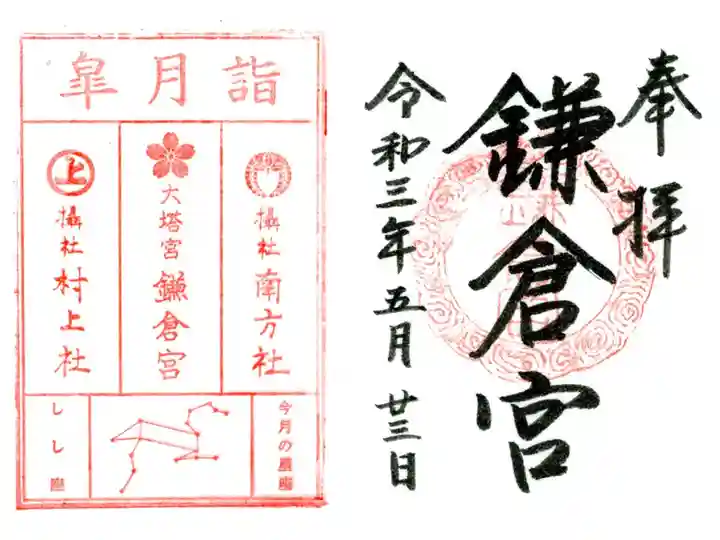 奉拝
鎌倉宮
令和三年五月廿三日
皐月詣
摂社南方社
大塔宮鎌倉宮
上
摂社村上社
今月の星座
しし座